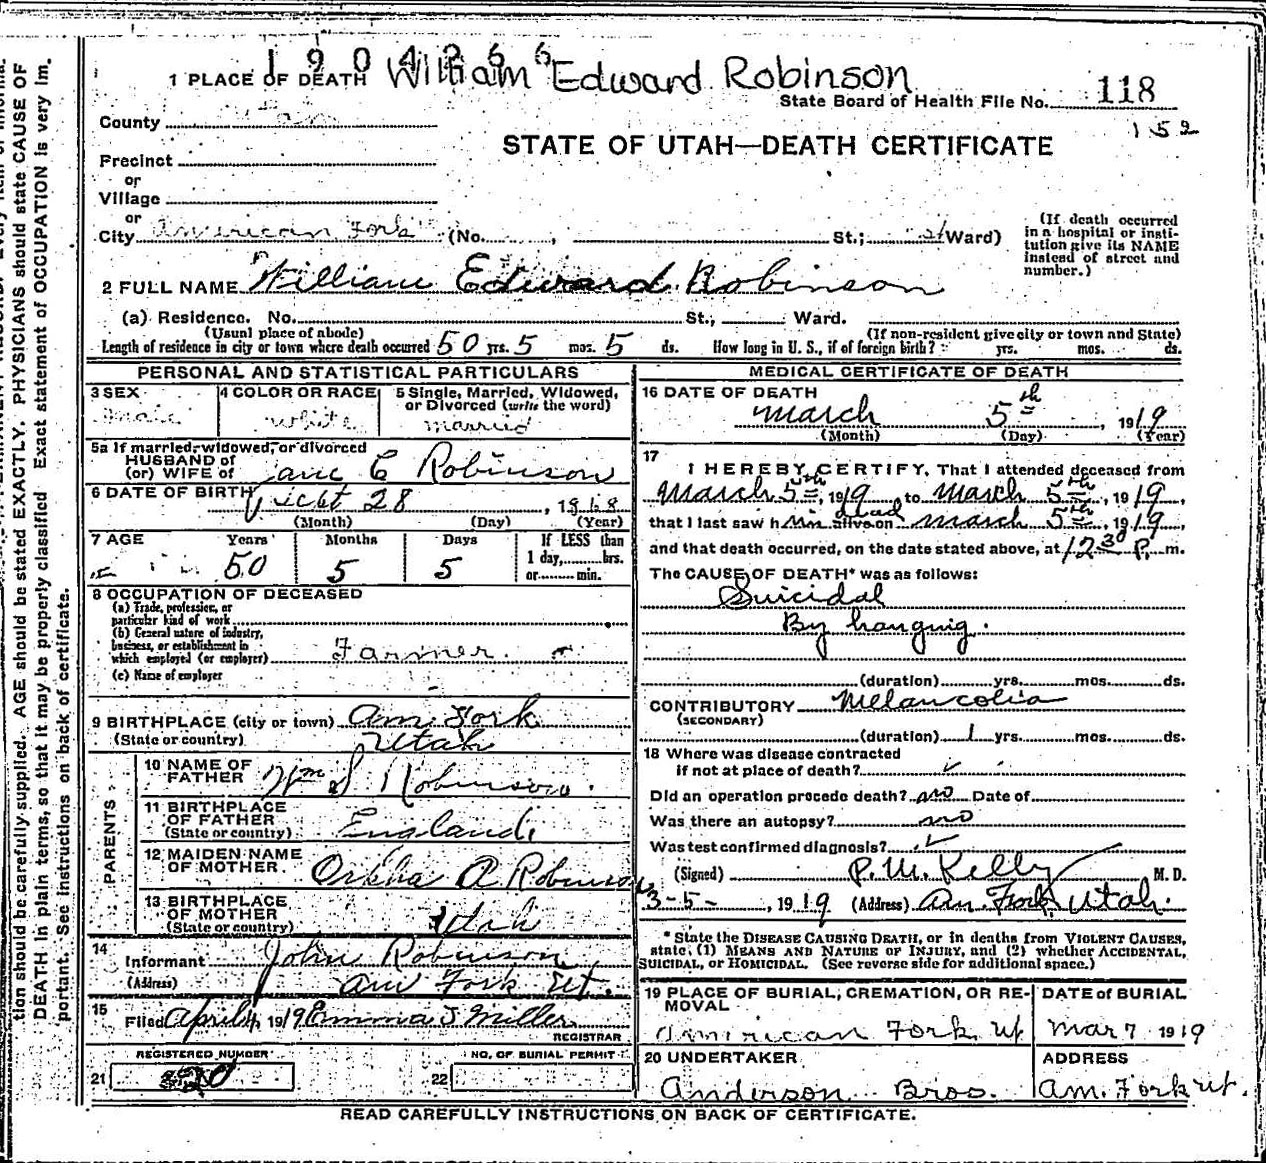 1904266
William Edward Robinson
1 PLACE OF DEATH
State Board of Health File No. 118
County
152
STATE OF UTAH—DEATH CERTIFICATE
Precinct
or
Village
or
City American Fork (No. , St.; Ward)
(If death occurred in a hospital or insti-
tution give its NAME instead of street and number.)
2 FULL NAME William Edward Robinson
(a) Residence. No. St., Ward.
(Usual place of abode) (If non-resident give city or town and State)
Length of residence in city or town where death occurred 50 yrs. 5 mos. 5 ds. How long in U. S., if of foreign birth? yrs. mos. ds.
PERSONAL AND STATISTICAL PARTICULARS
3 SEX Male
4 COLOR OR RACE white
5 Single, Married, Widowed, or Divorced (write the word) married
5a If married, widowed, or divorced
HUSBAND of
(or) WIFE of Jane E Robinson
6 DATE OF BIRTH Sept 28, 1868
(Month) (Day) (Year)
7 AGE Years 50 Months 5 Days 5
If LESS than 1 day, hrs. or min.
8 OCCUPATION OF DECEASED
(a) Trade, profession, or particular kind of work
(b) General nature of industry, business, or establishment in which employed (or employer) Farmer.
(c) Name of employer
9 BIRTHPLACE (city or town) Am Fork
(State or country) Utah
PARENTS
10 NAME OF FATHER Wm S Robinson.
11 BIRTHPLACE OF FATHER (State or country) England
12 MAIDEN NAME OF MOTHER. A Robinson
13 BIRTHPLACE OF MOTHER (State or country) Utah
14 Informant John Robinson
(Address) Am Fork Ut.
15 Filed April 4, 1919 Emma S Miller
REGISTRAR
REGISTERED NUMBER
21 20
NO. OF BURIAL PERMIT
22
MEDICAL CERTIFICATE OF DEATH
16 DATE OF DEATH
March 5th, 1919
(Month) (Day) (Year)
17 I HEREBY CERTIFY, That I attended deceased from
March 5th, 1919, to March 5th, 1919,
that I last saw him alive on dead March 5th, 1919,
and that death occurred, on the date stated above, at 12 30 P. m.
The CAUSE OF DEATH* was as follows:
Suicidal
By hanging.
(duration) yrs. mos. ds.
CONTRIBUTORY Melancolia
(SECONDARY)
(duration) 1 yrs. mos. ds.
18 Where was disease contracted
if not at place of death?
Did an operation precede death? no Date of
Was there an autopsy? no
Was test confirmed diagnosis?
(Signed) P. M. Kelly M. D.
3-5-, 1919 (Address) Am. Fork, Utah.
* State the DISEASE CAUSING DEATH, or in deaths from VIOLENT CAUSES,
state, (1) MEANS AND NATURE OF INJURY, and (2) whether ACCIDENTAL,
SUICIDAL, or HOMICIDAL. (See reverse side for additional space.)
19 PLACE OF BURIAL, CREMATION, OR RE-
MOVAL
American Fork, Ut
DATE of BURIAL
Mar 7 1919
20 UNDERTAKER
Anderson Bros.
ADDRESS
Am. Fork Ut.
READ CAREFULLY INSTRUCTIONS ON BACK OF CERTIFICATE.
tion should be carefully supplied. AGE should be stated EXACTLY. PHYSICIANS should state CAUSE OF
DEATH in plain terms, so that it may be properly classified. Exact statement of OCCUPATION is very im-
portant. See instructions on back of certificate.